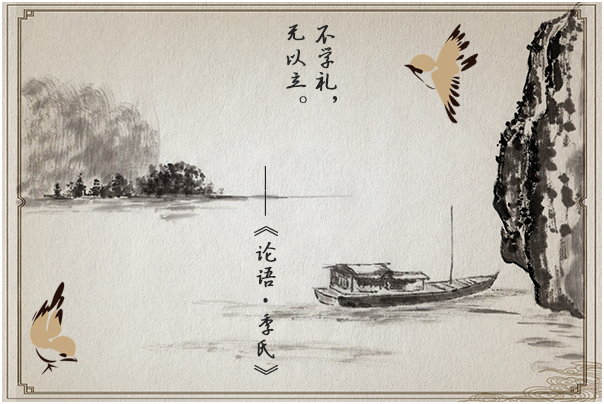 不学礼，
无以立。
——《论语·季氏》